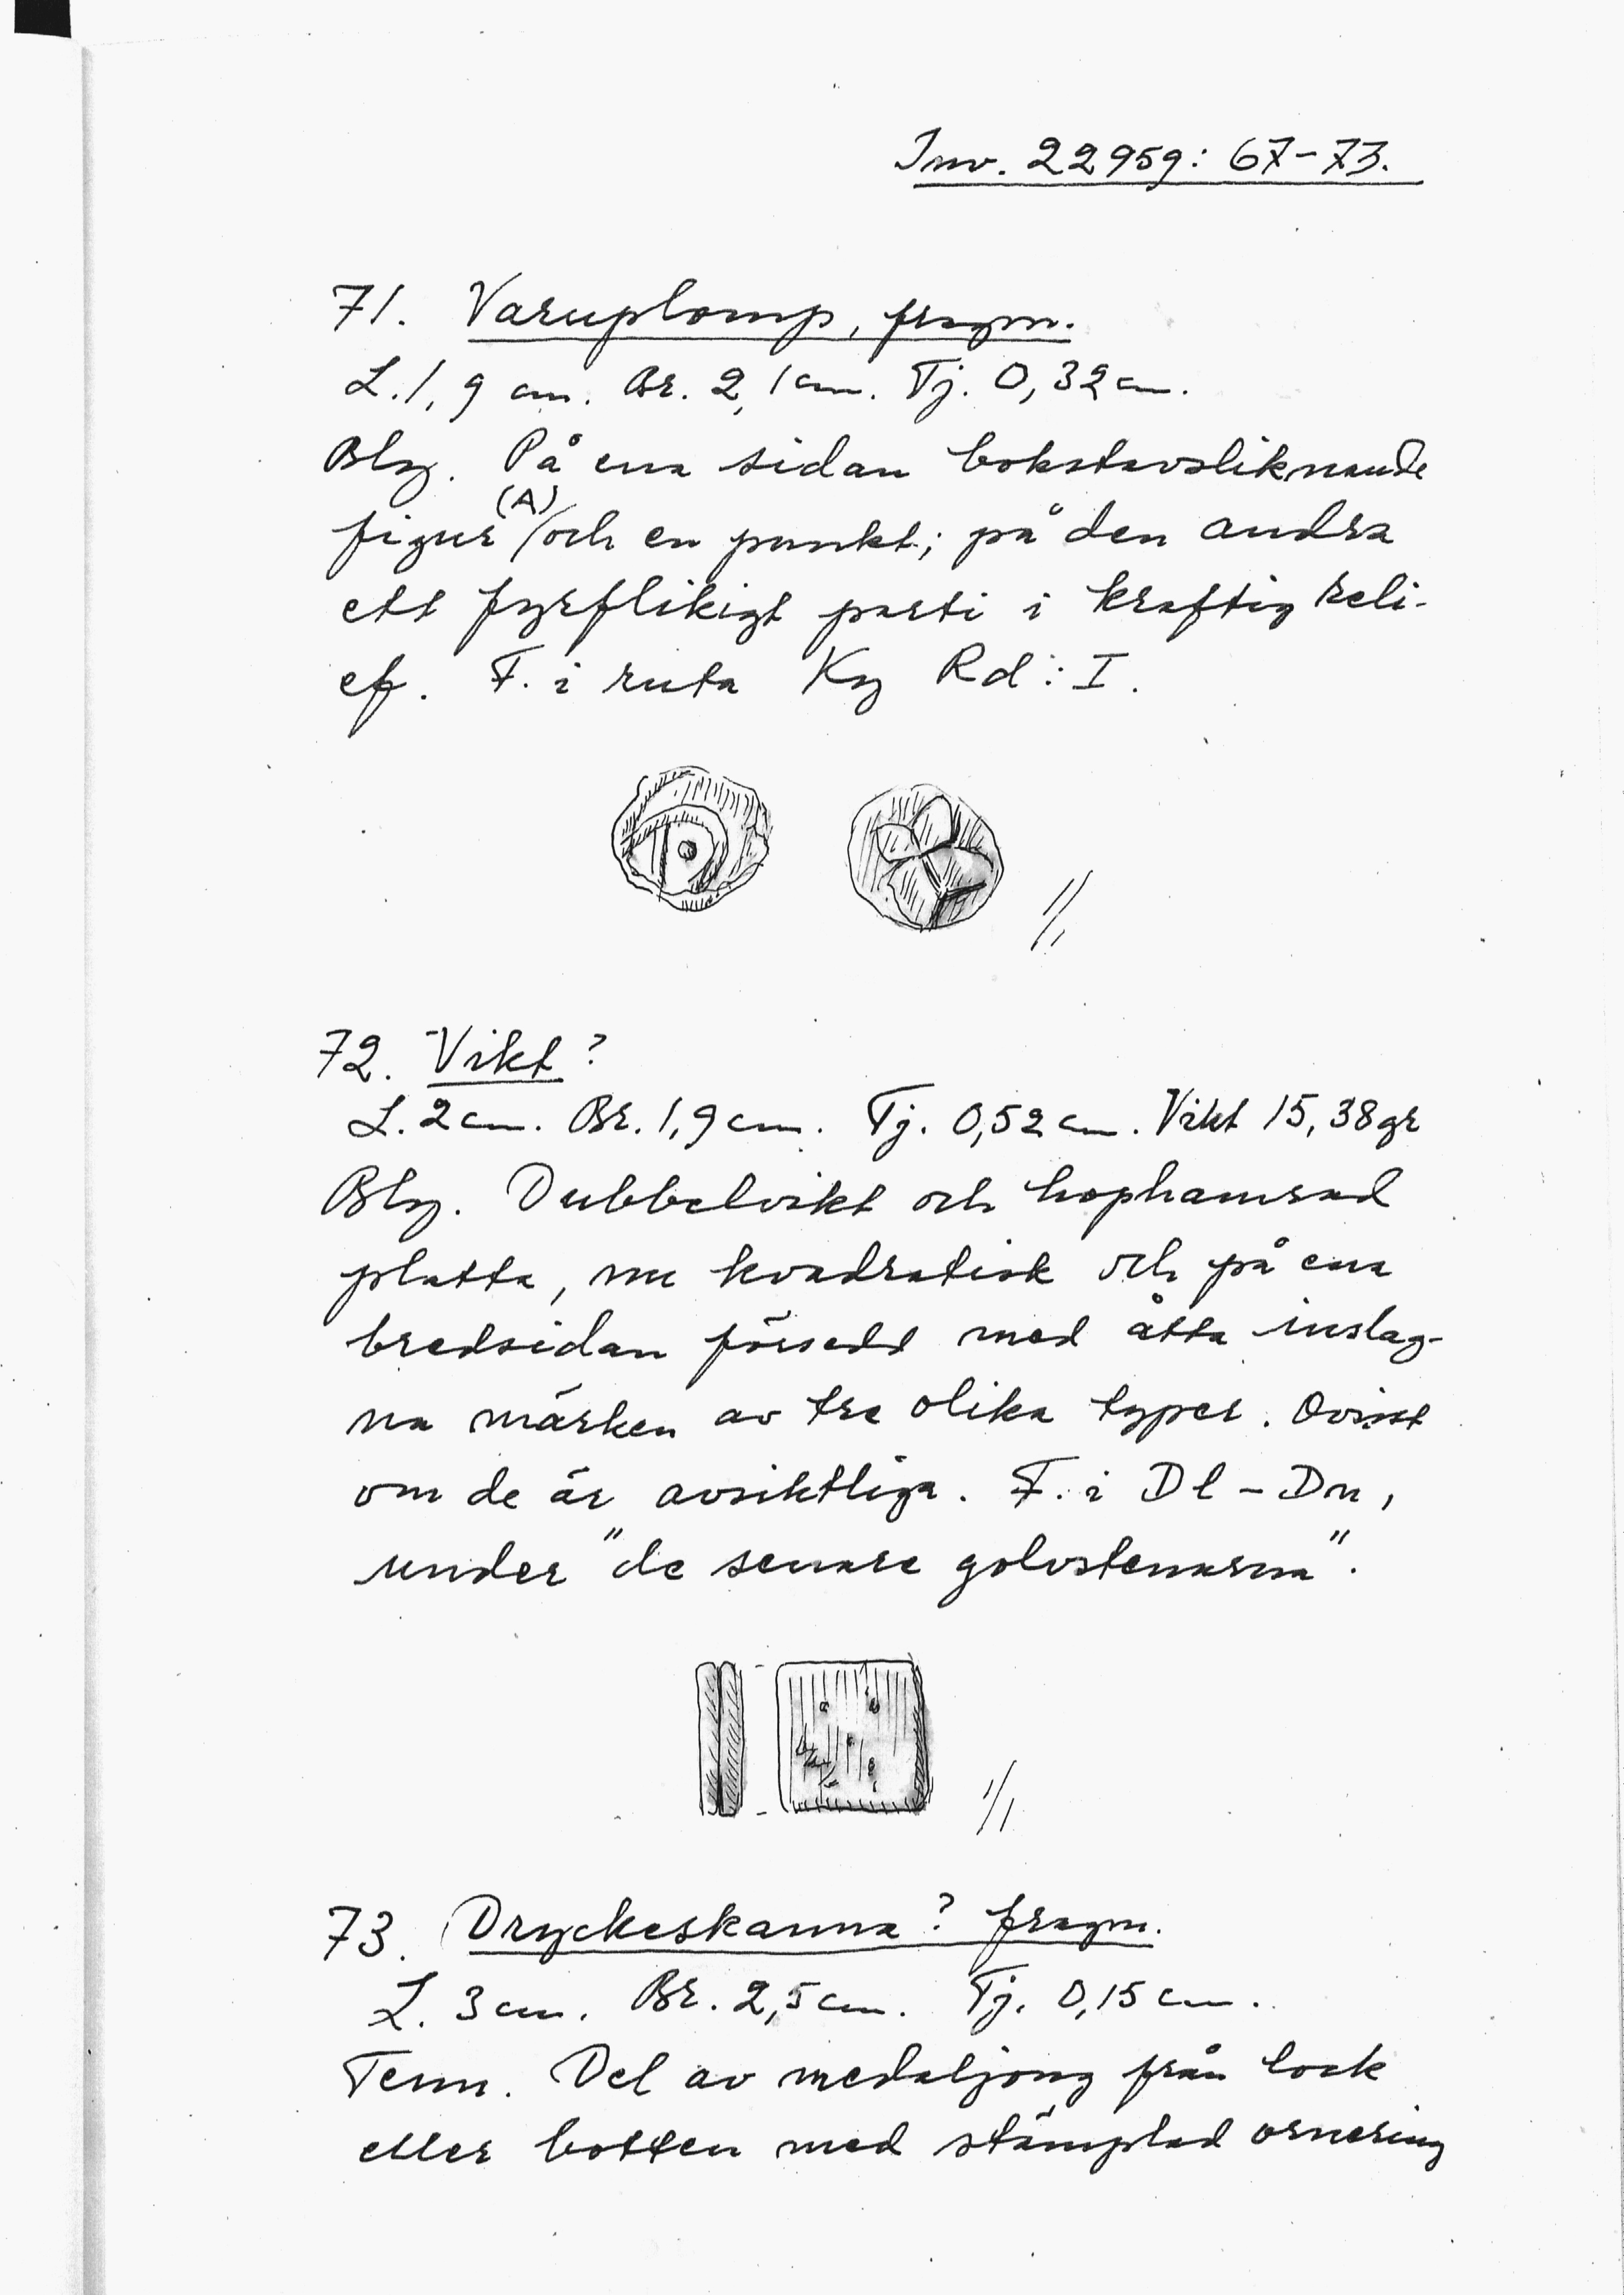 Inv. 22959: 67-73.
71. Varuplomp, fragm.
L. 1,9 cm. Br. 2,1 cm. Tj. 0,32 cm.
Bly. På ena sidan bokstavsliknande
(A)
figur / och en punkt; på den andra
ett fyrflikigt parti i kraftig reli-
ef. F. i ruta Ky Rd: I.
1/1
72. Vikt?
L. 2 cm. Br. 1,9 cm. Tj. 0,52 cm. Vikt 15,38 gr
Bly. Dubbelvikt och hophamrad
platta, nu kvadratisk och på ena
bredsidan försedd med åtta inslag-
na märken av tre olika typer. Ovisst
om de är avsiktliga. F. i Dl - Dn,
under "de senare golvstenarna".
1/1
73. Dryckeskanna? fragm.
L. 3 cm. Br. 2,5 cm. Tj. 0,15 cm.
Tenn. Del av medaljong från lock
eller botten med stämplad ornering